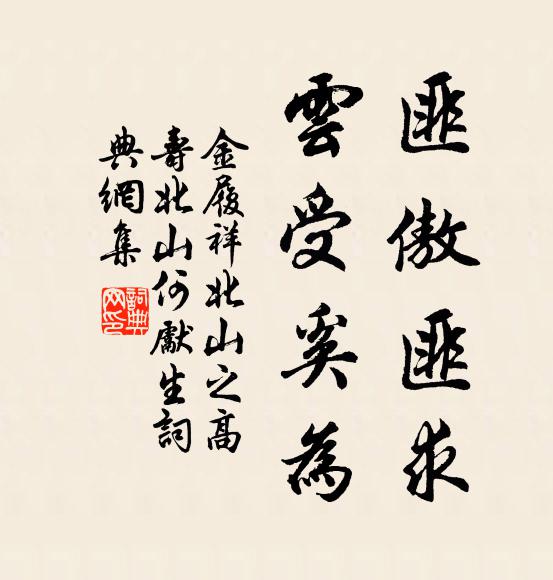 匪傲匪求
雲受奚為
金履祥北山之高
壽北山何獻生詞
典網集
詞典网印